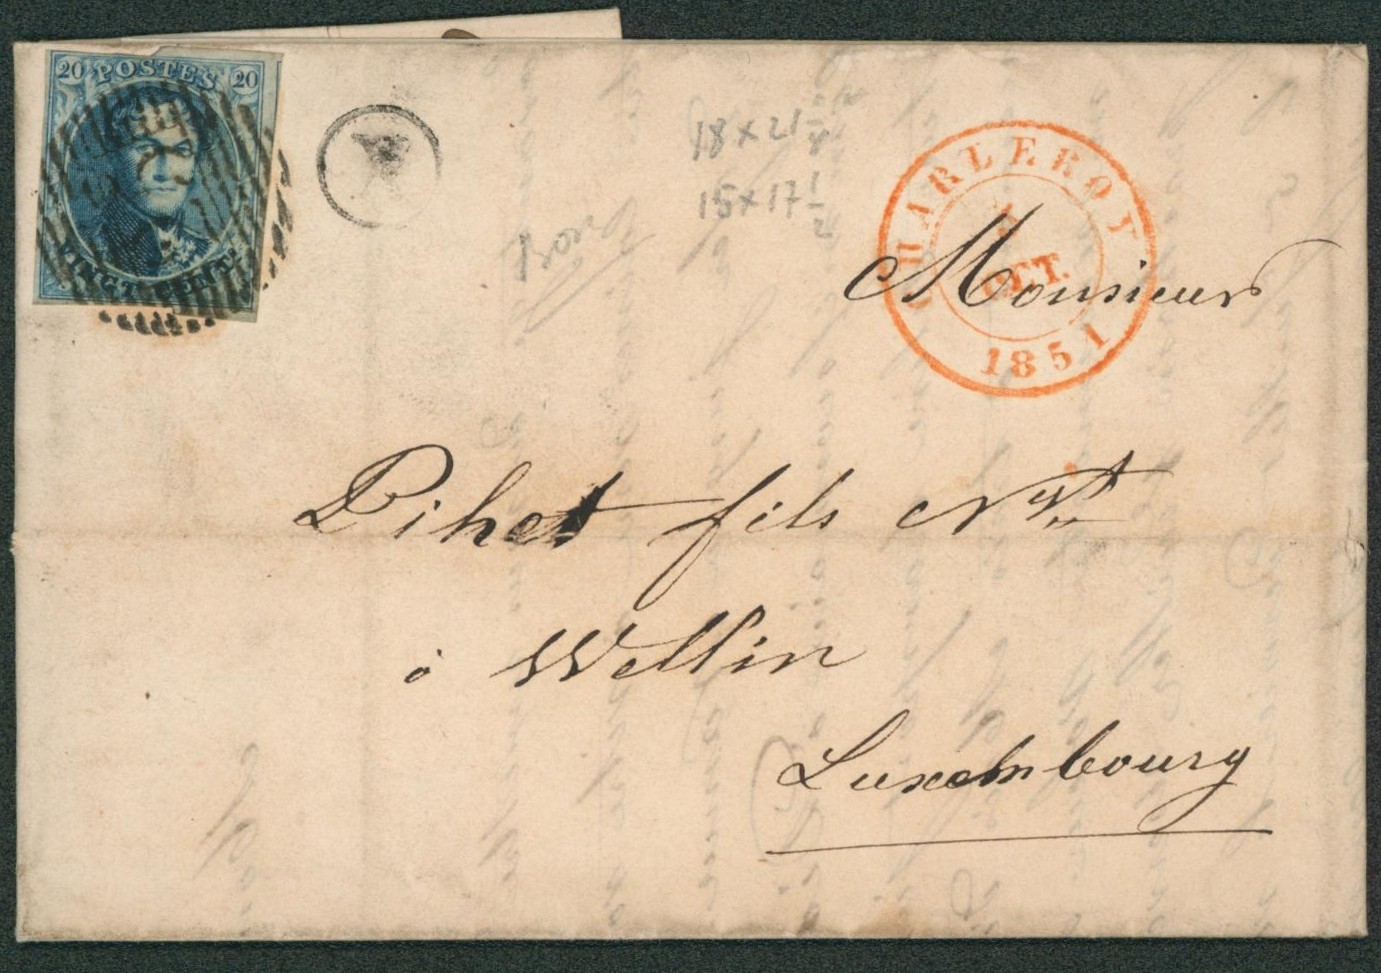 20 POSTES 20
VINGT CENTS
X
18 x 21 1/2
15 x 17 1/2
CHARLEROY
OCT.
1851
Monsieur
Pihet fils
à Wellin
Luxembourg